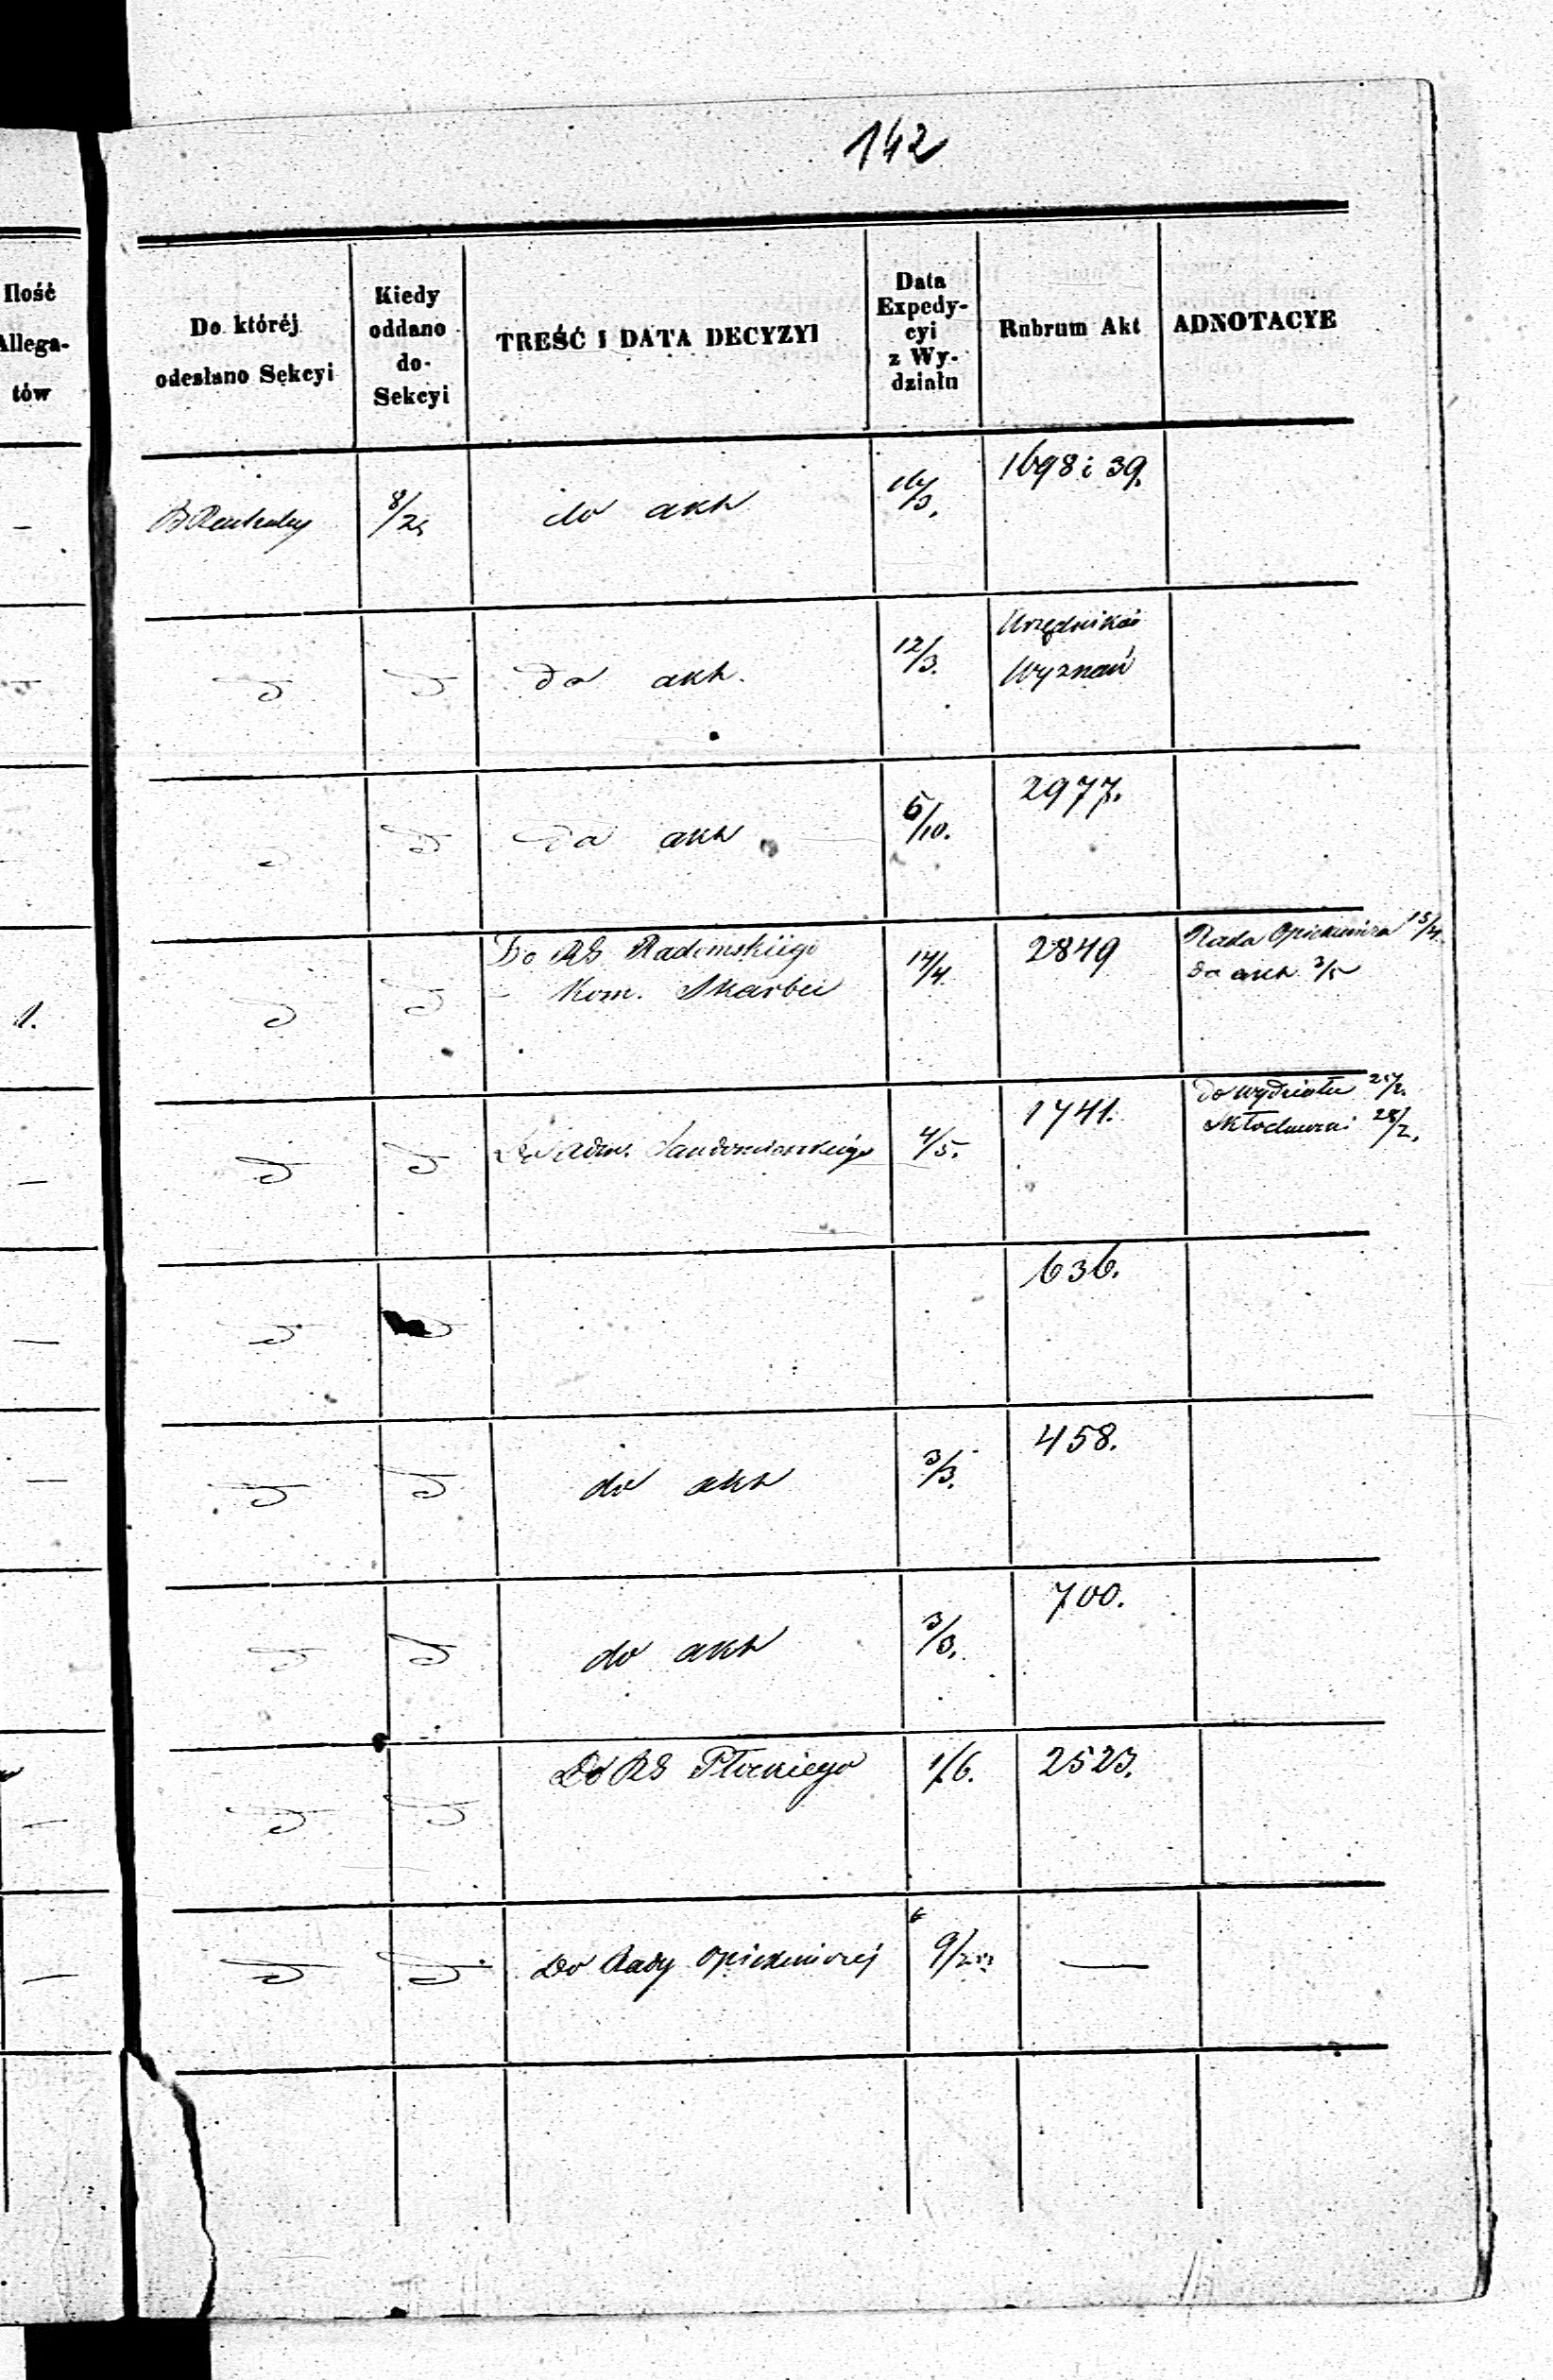 142
Ilość
Allega-
tów
Do któréj
odesłano Sekcyi
Kiedy
oddano
do
Sekcyi
TREŚĆ I DATA DECYZYI
Data
Expedy-
cyi
z Wy-
działu
Rubrum Akt
ADNOTACYE
8/2 do akt 1698 i 39.
d d do akt. 12/3. Urzędników
Wyznań
d d do akt 5/10. 2977.
1. d d Do RG Radomskiego 14/4. 2849 Rada Opiekuńcza 15/4.
– Kom. Skarbu do akt 3/5
d d Do Adm. Sandomierskiego 4/5. 1741. do wydziału 25/2.
28/2.
d d 636.
d d do akt 3/3. 458.
d d do akt 3/3. 700.
d d Do RG Płockiego 1/6. 2523.
d d Do Rady Opiekuńczej —